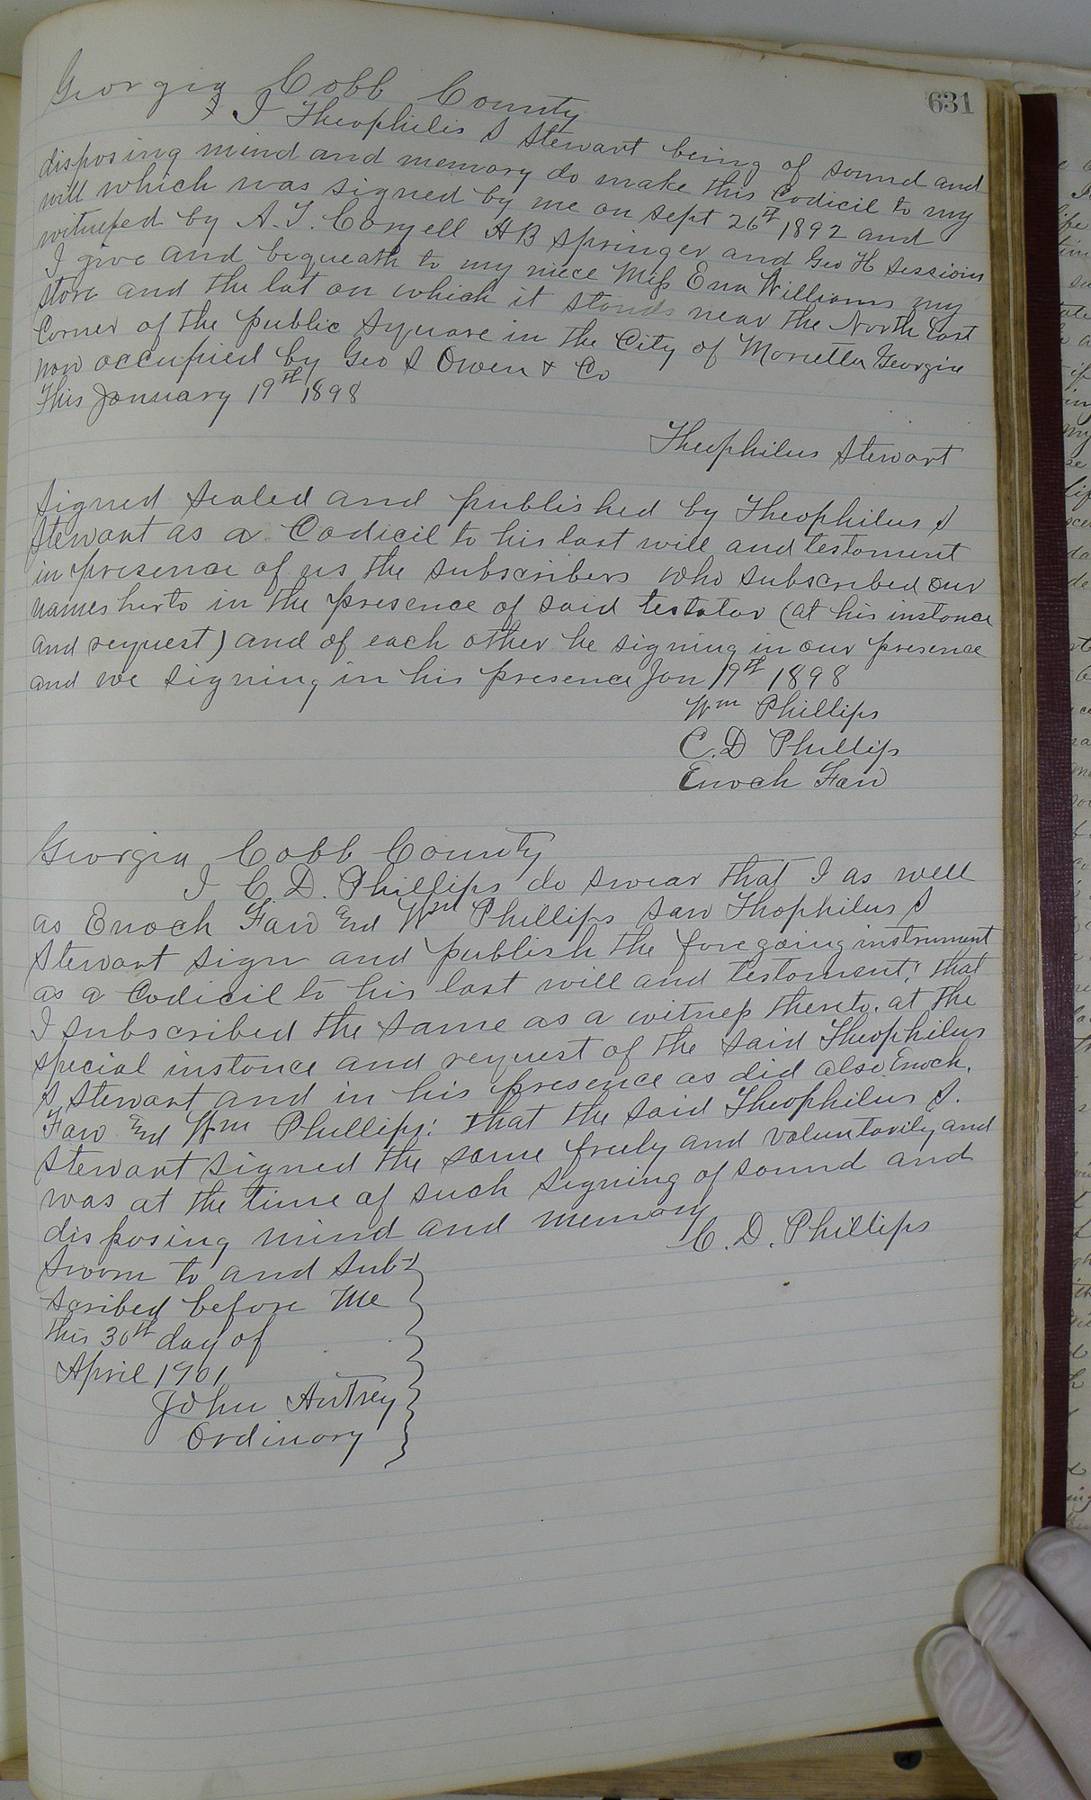 631
Georgia Cobb County
I Theophilis S Stewart being of sound and
disposing mind and memory do make this Codicil to my
will which was signed by me on Sept 26th 1892 and
witneßed by A. S. Coryell H B Springer and Geo H Sessions
I give and bequeath to my niece Miß Ena Williams my
store and the lot on which it stands near the North East
Corner of the public Square in the City of Marietta Georgia
now occupied by Geo S Owen & Co
This January 19th 1898
Theophilus Stewart
Signed sealed and published by Theophilus S
Stewart as a Codicil to his last will and testament
in presence of us the subscribers who subscribed our
names herto in the presence of said testator (at his instance
and request) and of each other he signing in our presence
and we signing in his presence Jan 19th 1898
Wm Phillips
C. D Phillips
Enoch Faw
Georgia Cobb County
I C. D. Phillips do swear that I as well
as Enoch Faw and Wm Phillips saw Thophilus S
Stewart sign and publish the foregoing instrument
as a Codicil to his last will and testament; that
I subscribed the same as a witneß thereto. at the
special instance and request of the said Theophilus
S. Stewart and in his presence as did also Enoch.
Faw and Wm Phillips: that the said Theophilus S.
Stewart signed the same freely and voluntarily and
was at the time of such signing of sound and
disposing mind and memory
C. D. Phillips
Sworn to and sub-
scribed before Me
this 30th day of
April 1901
John Awtrey
Ordinary